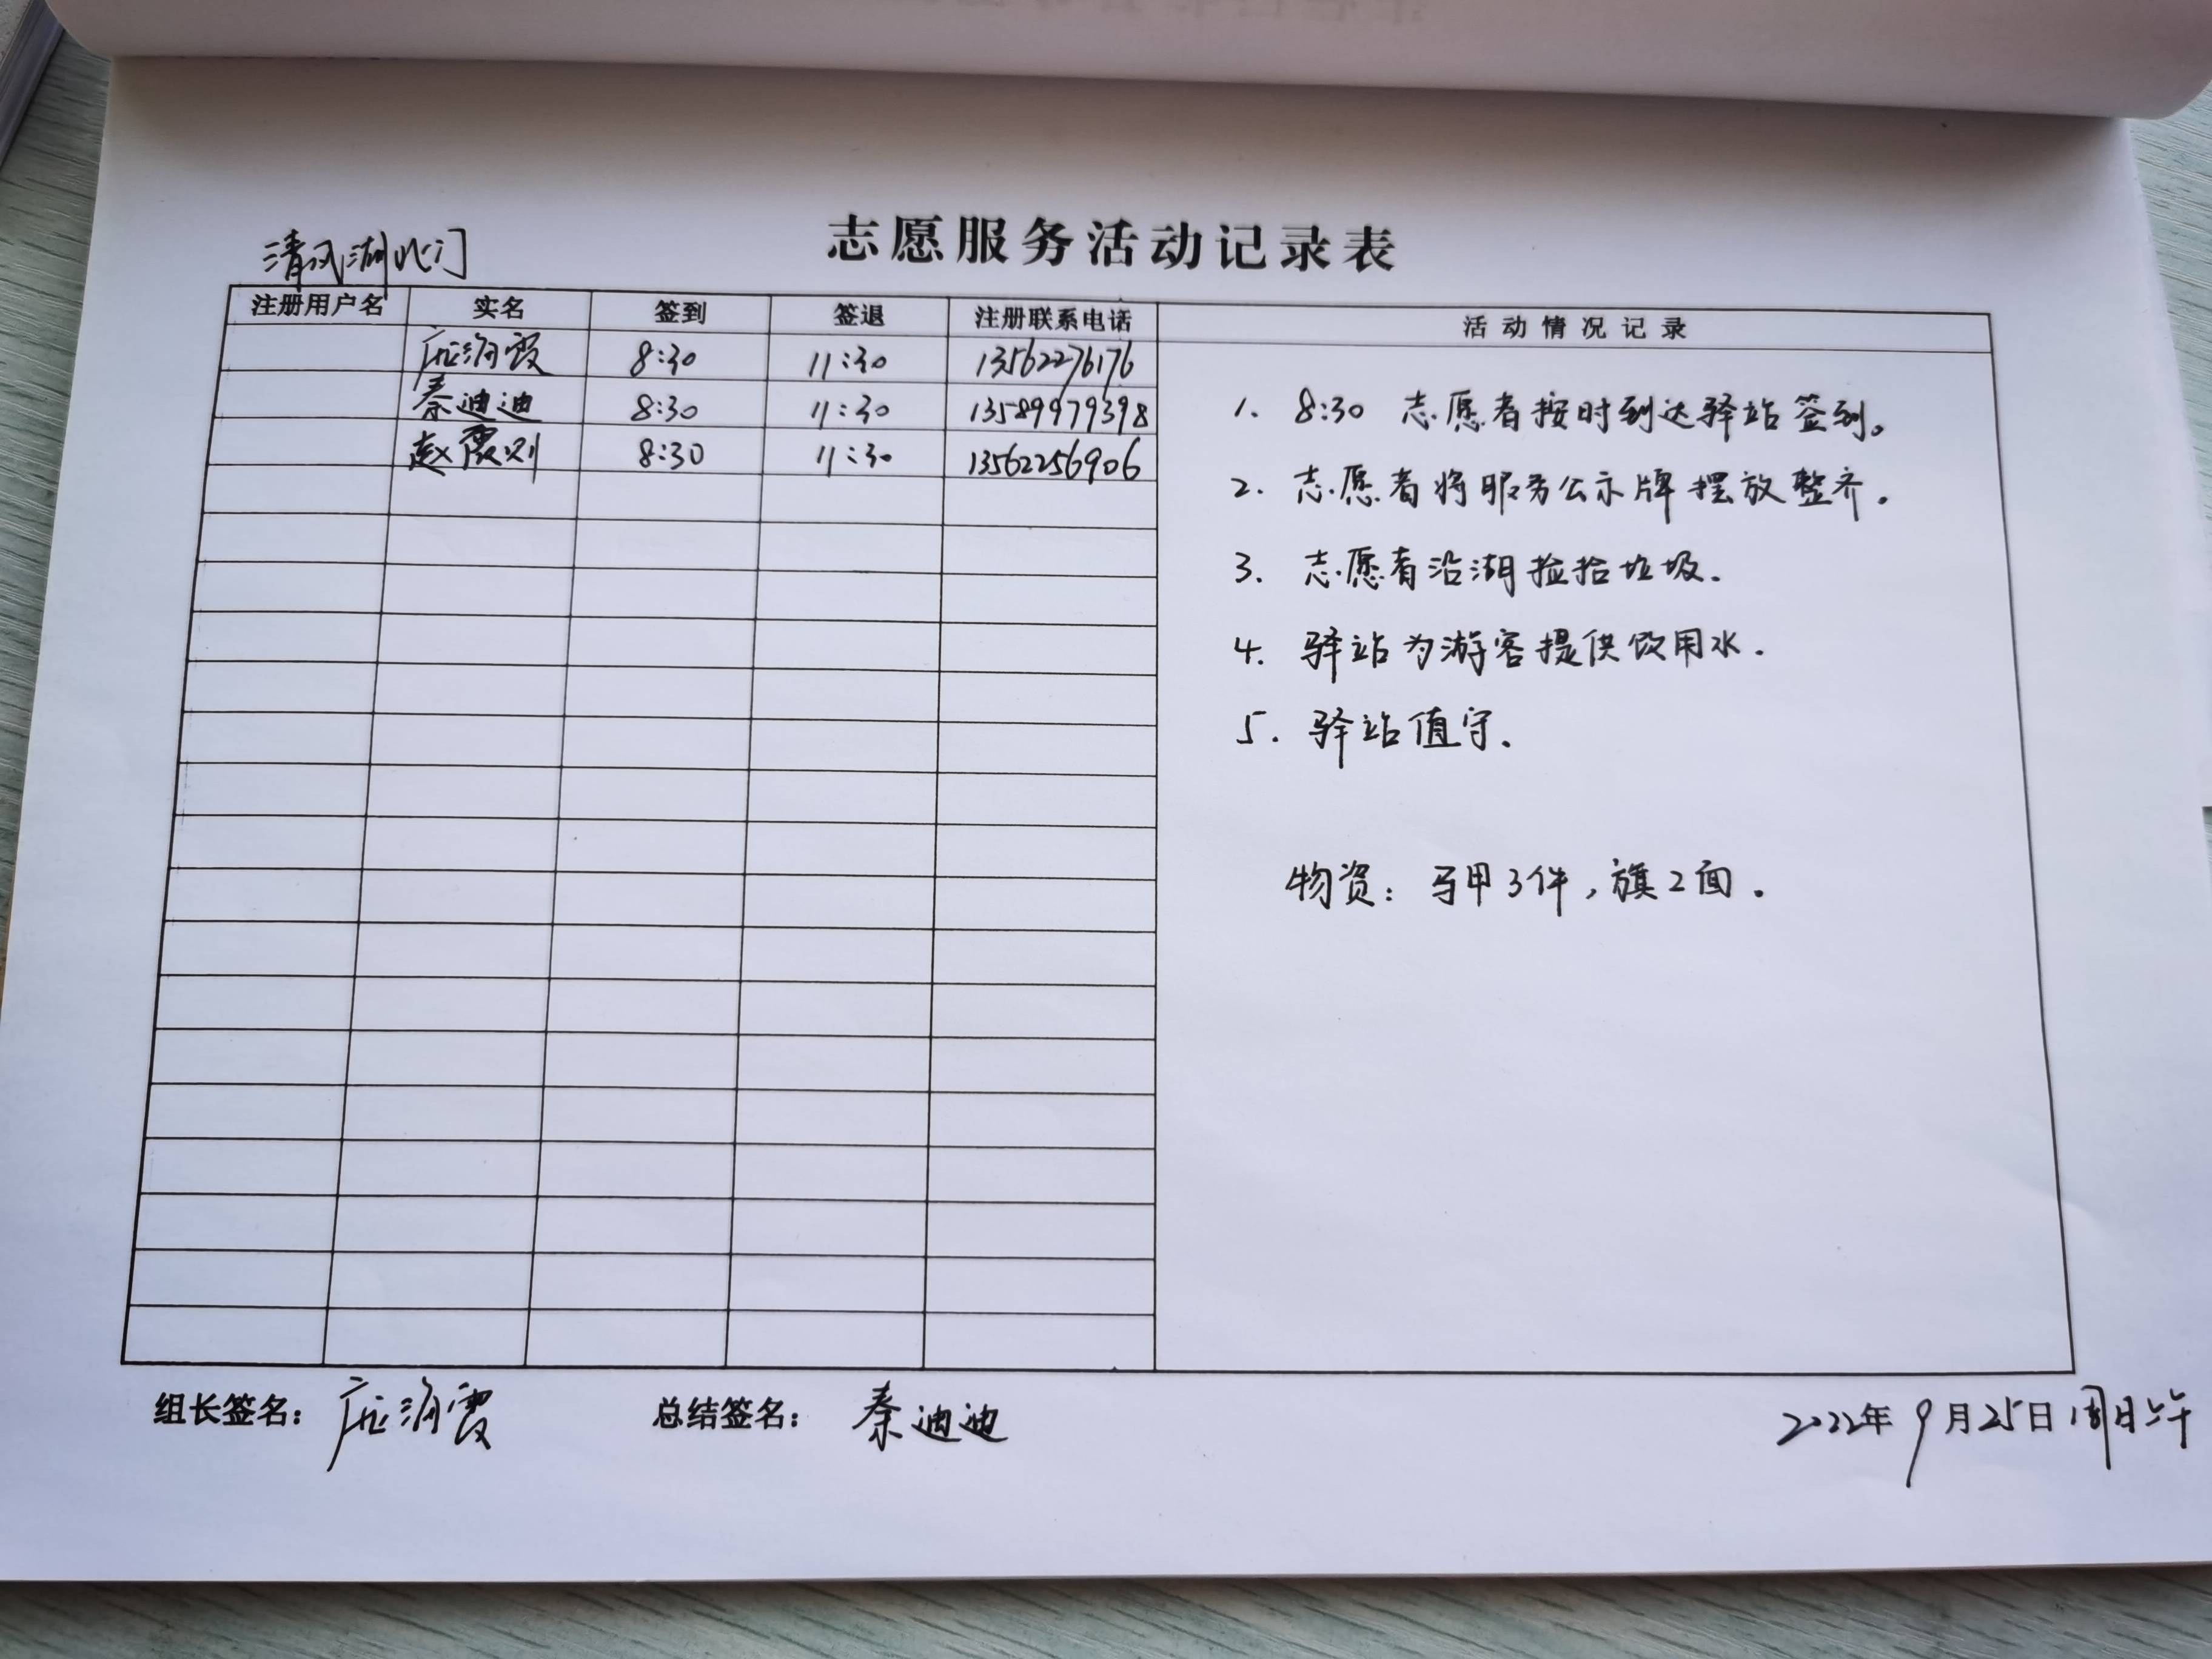 志愿服务活动记录表
清风湖北门
注册用户名 实名 签到 签退 注册联系电话 活动情况记录
霞 8:30 11:30 13562276176
秦迪迪 8:30 11:30 13589979398
赵霞 8:30 11:30 13562256906
1. 8:30 志愿者按时到达驿站签到。
2. 志愿者将服务公示牌摆放整齐.
3. 志愿者沿湖捡拾垃圾.
4. 驿站为游客提供饮用水.
5. 驿站值守.
物资: 马甲3件,旗2面.
组长签名: 霞 总结签名: 秦迪迪 2022年9月25日周日上午